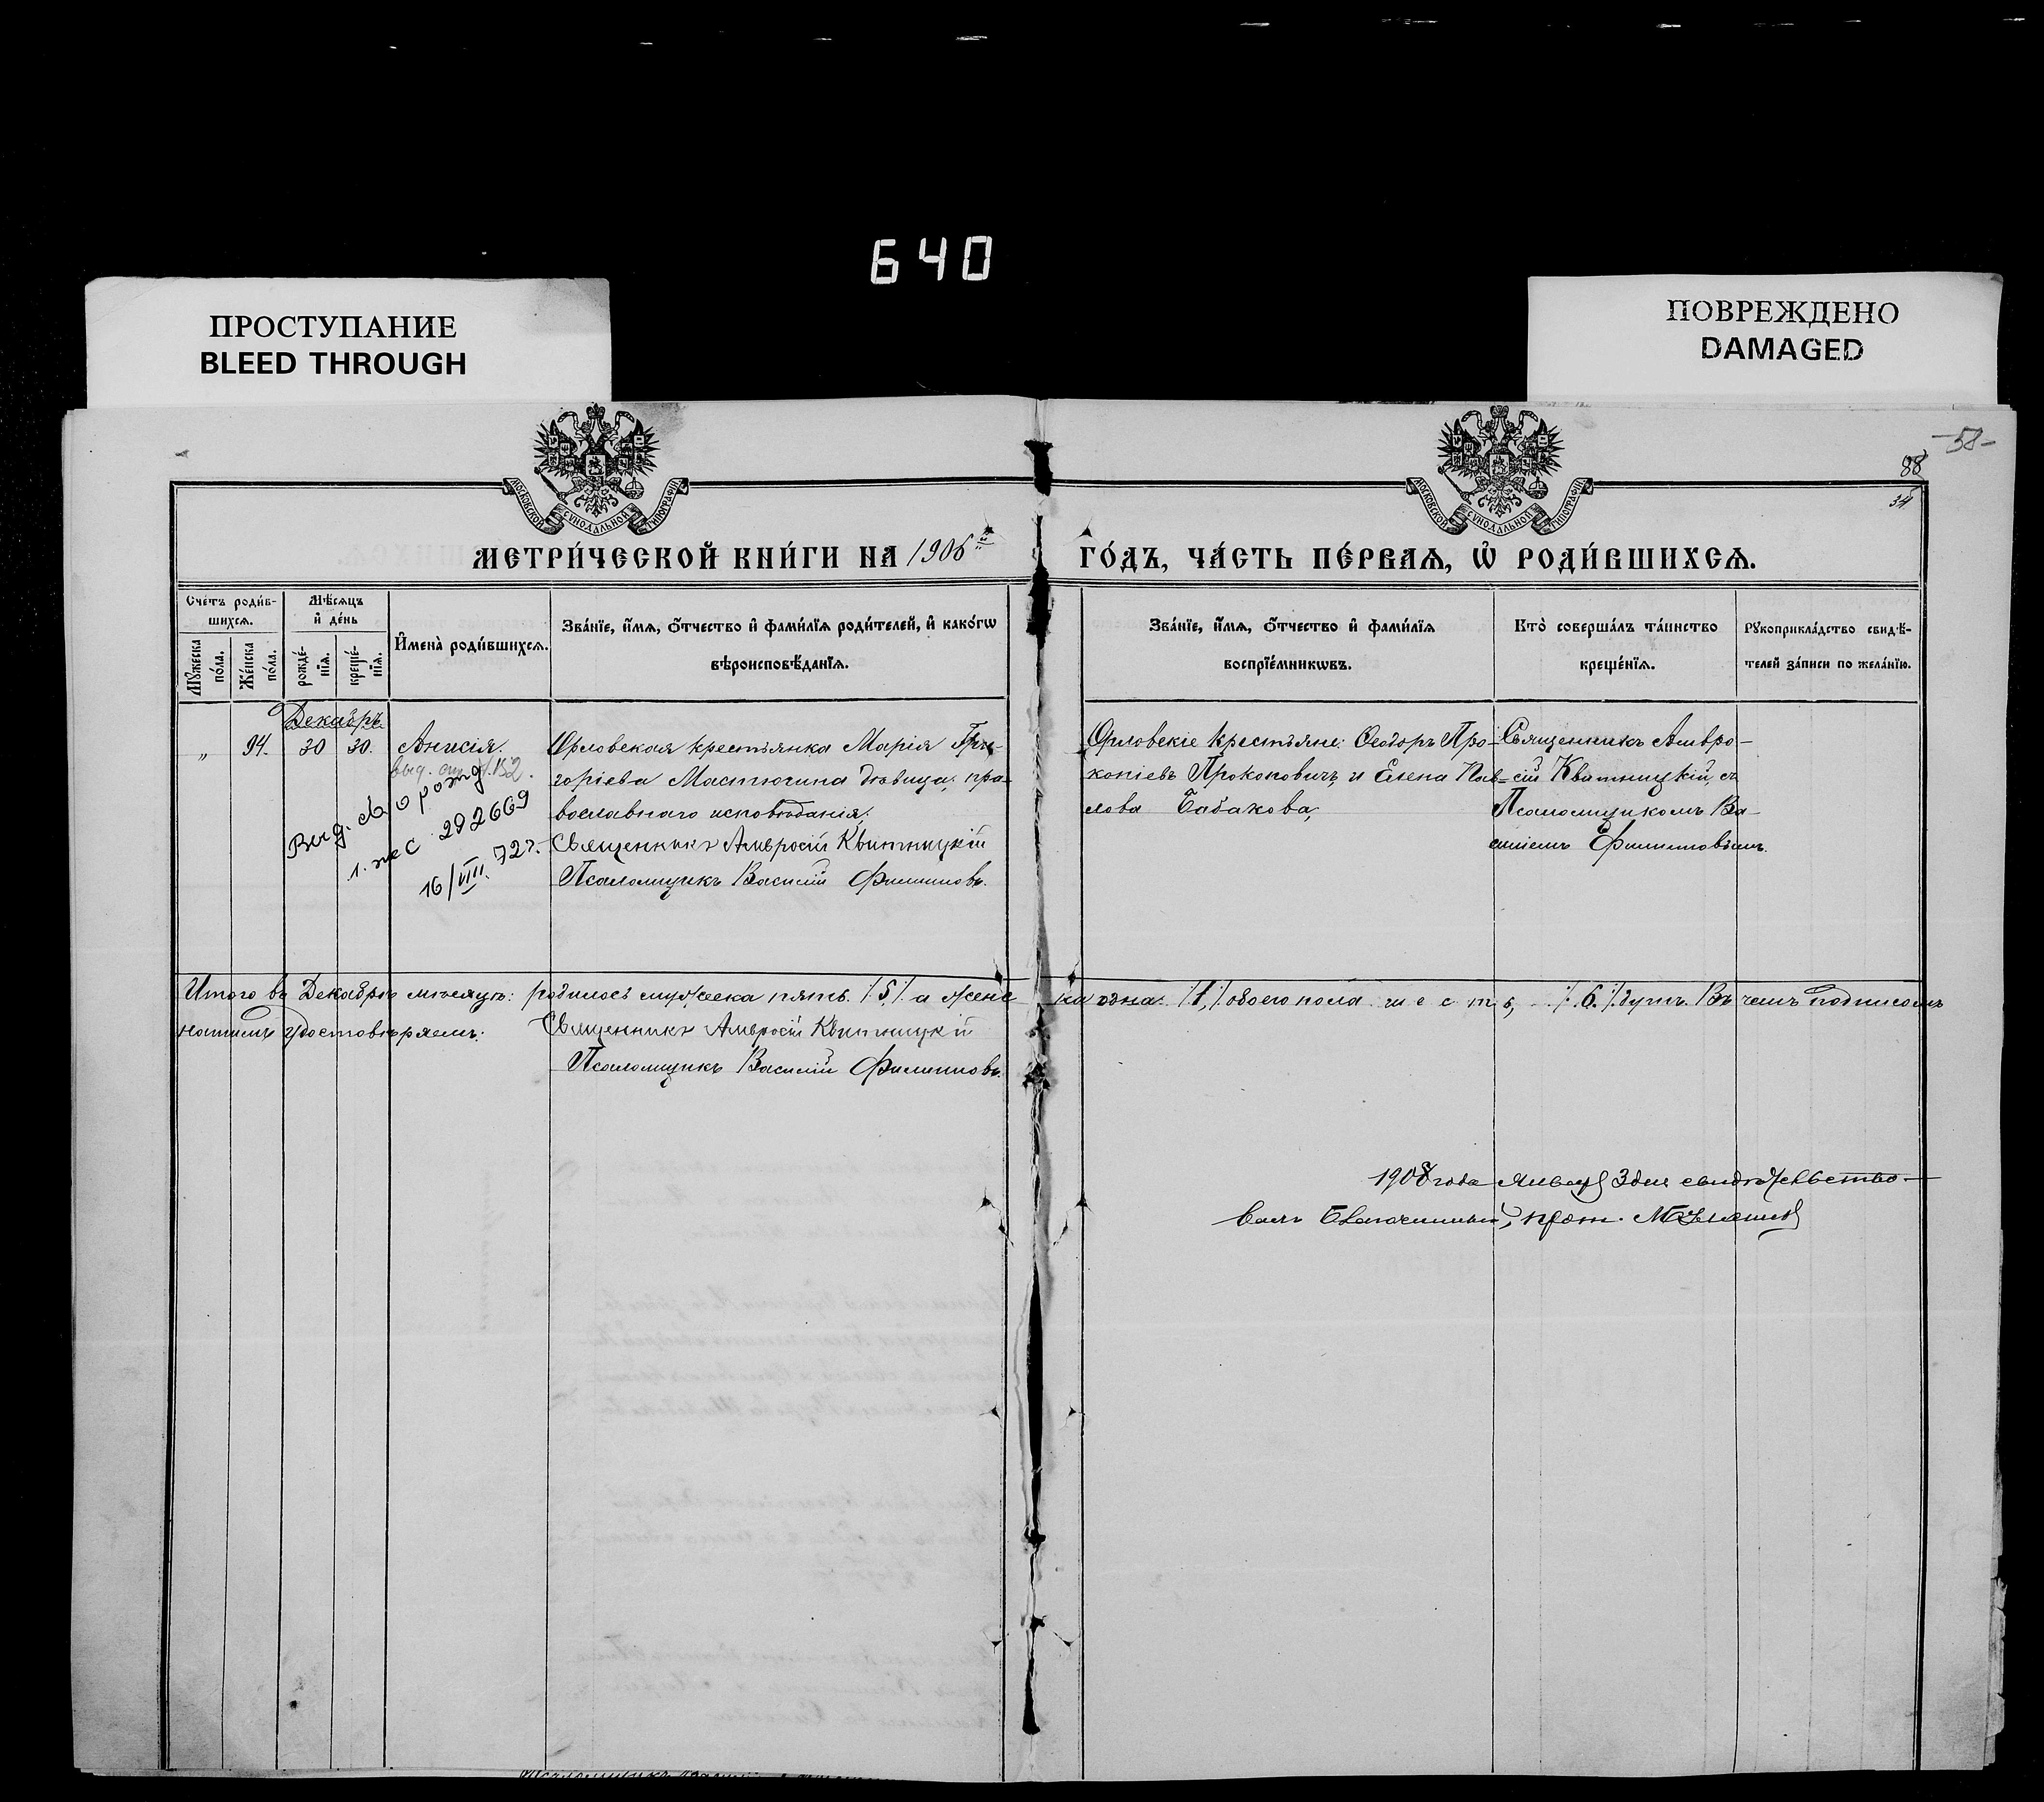 640
ПРОСТУПАНИЕ
BLEED THROUGH
ПОВРЕЖДЕНО
DAMAGED
-58-
88
34
МОСКОВСКОЙ СѴНОДАЛЬНОЙ ТИПОГРАФІИ
МОСКОВСКОЙ СѴНОДАЛЬНОЙ ТИПОГРАФІИ
МЕТРИ́ЧЕСКОЙ КНИ́ГИ НА 1906 ГО́ДЪ, ЧА́СТЬ ПЕ́РВАѦ, Ѡ҆ РОДИ́ВШИХСѦ.
Сче́тъ роди́в-
шихсѧ.
Мꙋ́жеска по́ла.
Же́нска по́ла.
Мѣ́сѧцъ
и҆ де́нь
рожде́-
нїѧ.
креще́-
нїѧ.
И҆мена̀ роди́вшихсѧ.
Зва́нїе, и҆́мѧ, о҆́тчество и҆ фами́лїѧ роди́телей, и҆ како́гѡ
вѣроисповѣ́данїѧ.
Зва́нїе, и҆́мѧ, о҆́тчество и҆ фами́лїѧ
воспрїе́мникѡвъ.
Кто̀ соверша́лъ та́инство
креще́нїѧ.
Рꙋкоприкла́дство свидѣ́-
телей за́писи по жела́нїю.
Декабрь
„ 94. 30 30. Анисія.
выд. 152.
Выд. св. о рожд.
1. же С 292669
16/VIII. 72 г.
Орловская крестьянка Марія Гри-
горіева Мастюгина дѣвица, пра-
вославнаго исповѣданія;
Священникъ Амвросій Квитницкій
Псаломщикъ Василій Филиповъ.
Орловскіе крестьяне: Ѳеодоръ Про-
копіевъ Прокоповичъ и Елена Пав-
лова Бабакова,
Священникъ Амвро-
сій Квитницкій, съ
Псаломщикомъ Ва-
силіемъ Филиповымъ.
Итого въ Декабрѣ мѣсяцѣ: родилось мужеска пять /5/ а женс ка одна /1,/ обоего пола ш е с т ь, /6./ душъ. Въ чемъ подписомъ
нашимъ удостовѣряемъ: Священникъ Амвросій Квитницкій
Псаломщикъ Василій Филиповъ.
1908 года Января 3 дня свидѣтельство-
валъ Благочинный, прот.